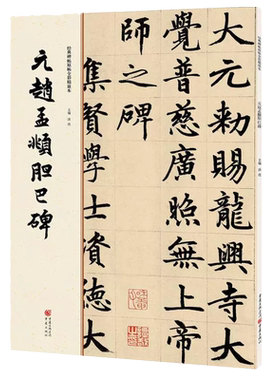 大元勅賜龍興寺大
覺普慈廣照無上帝
師之碑
集賢學士資德大
元趙孟頫胆巴碑
重庆出版社